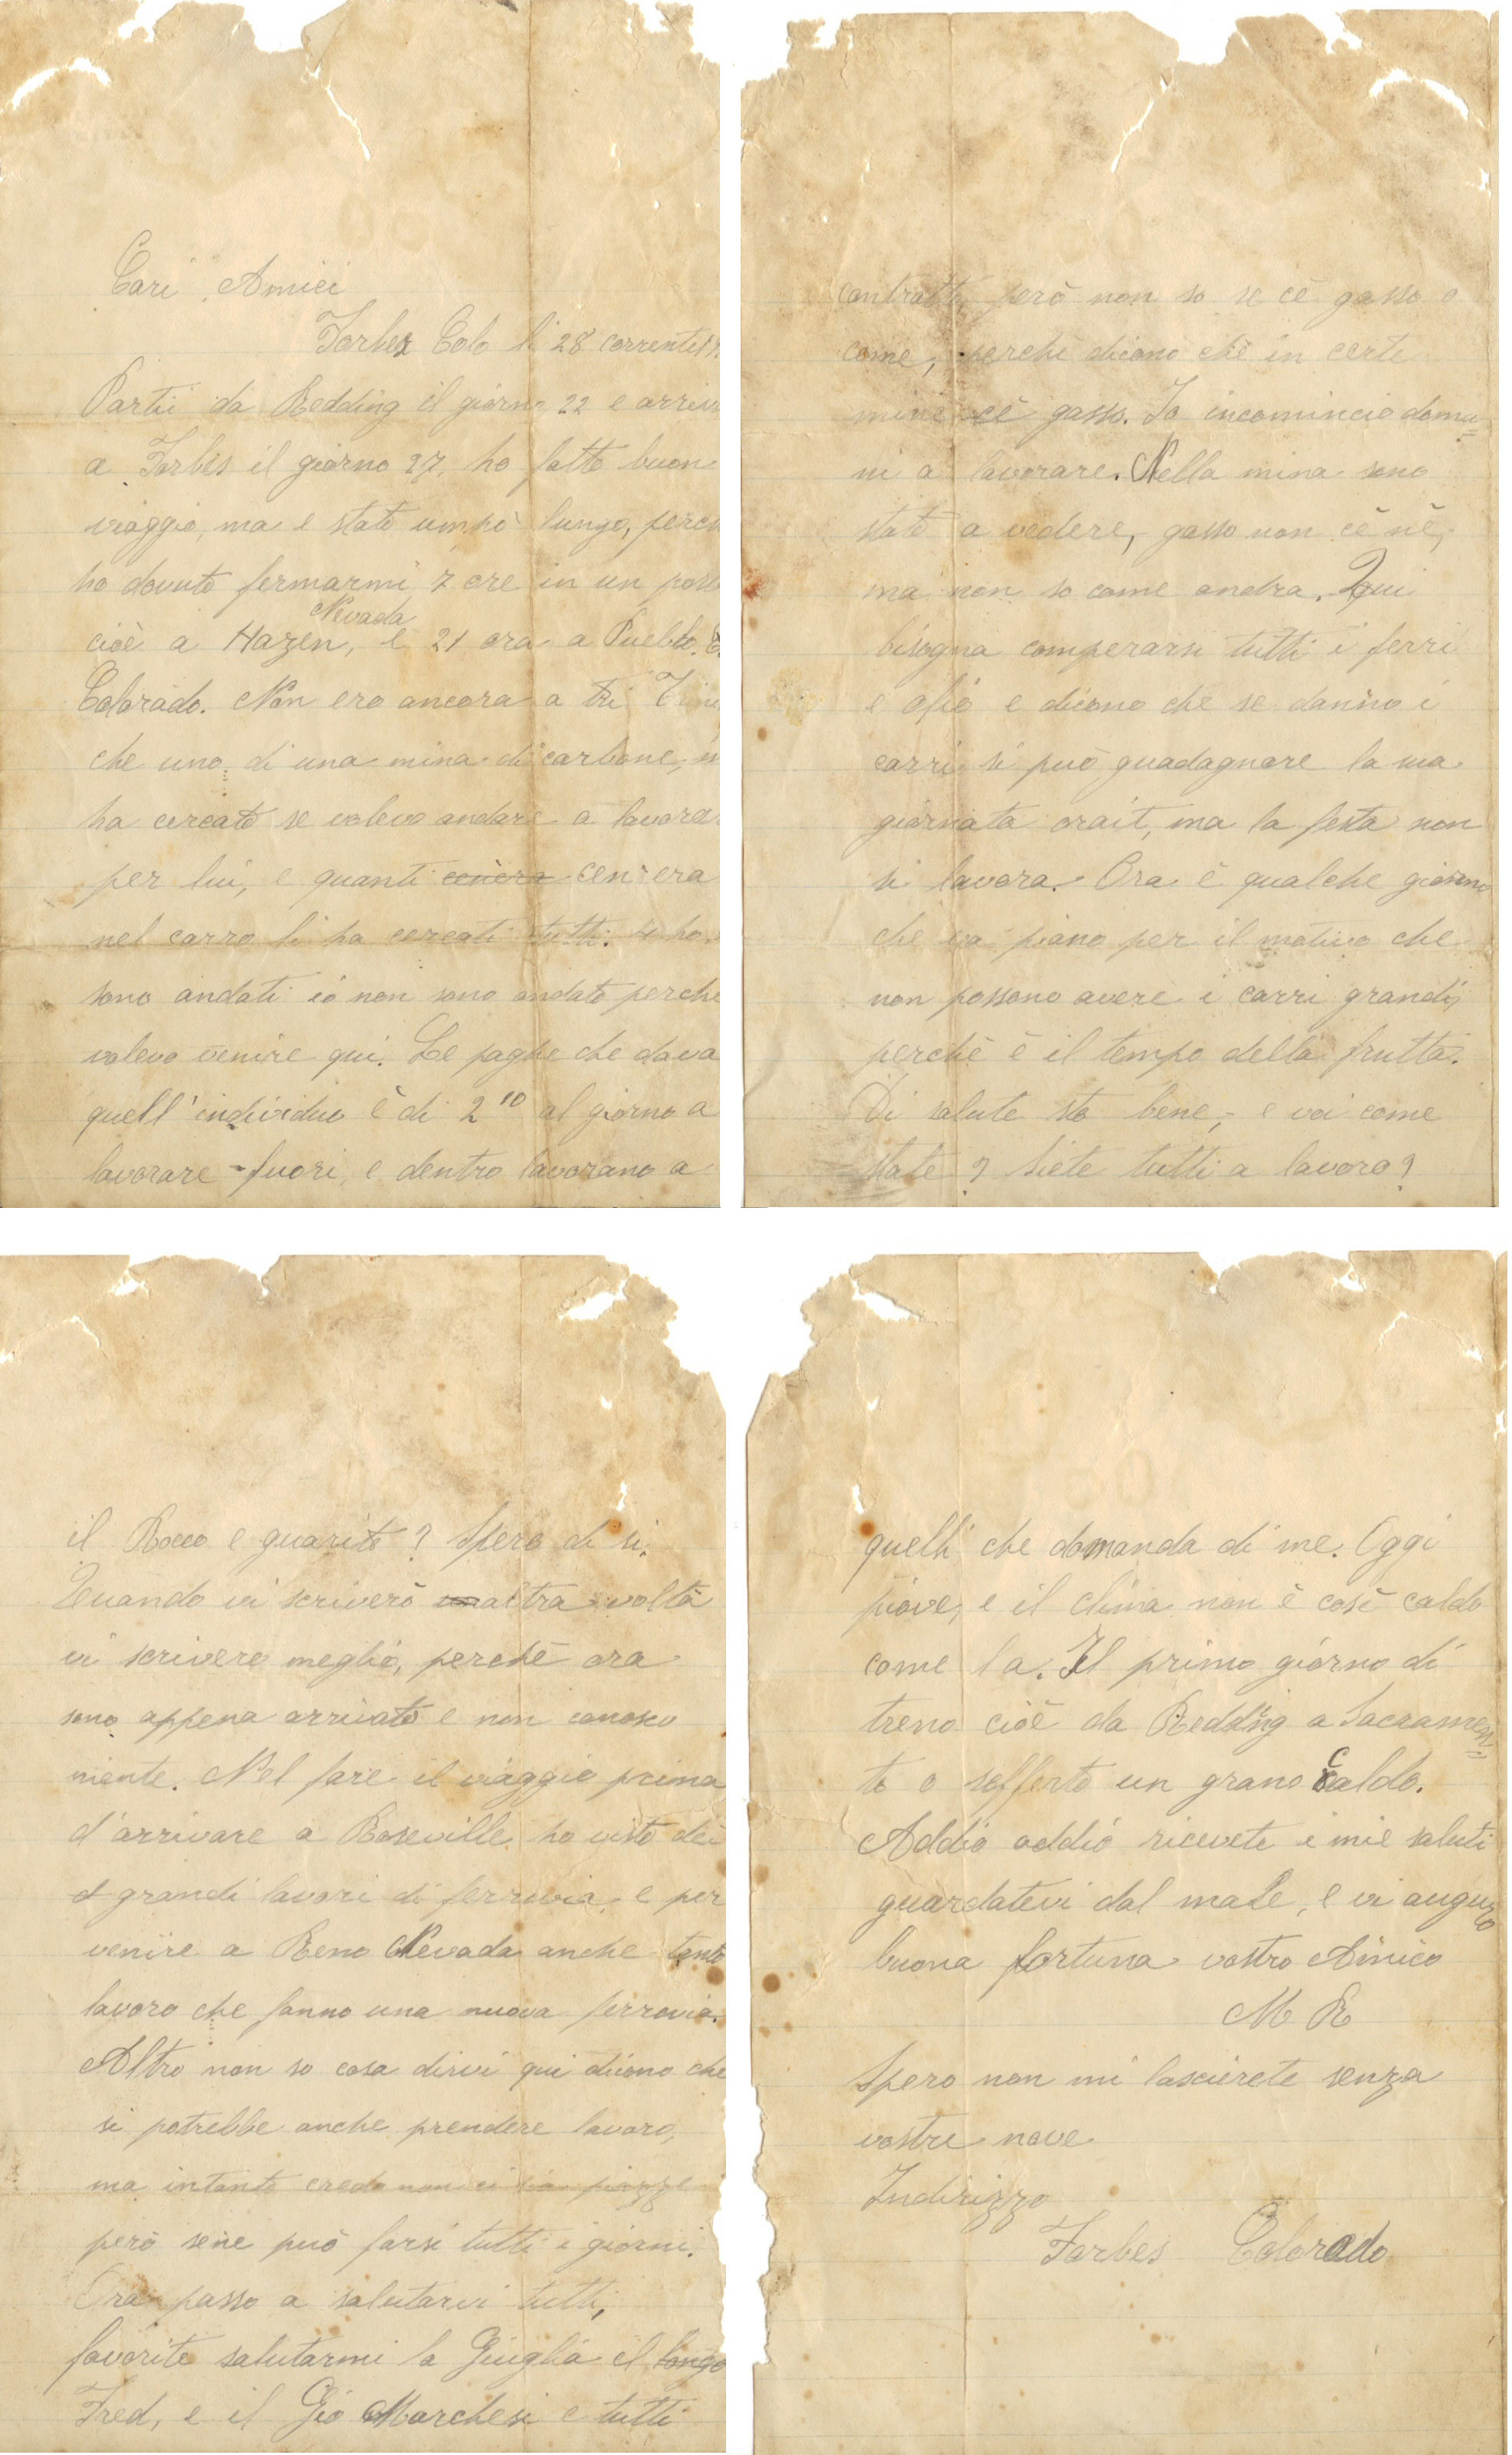 Cari Amici
Forbes Colo li 28 corrente
Partii da Redding il giorno 22 e arriv
a Forbes il giorno 27 ho fatto buon
viaggio, ma e stato umpò lungo, perc
ho dovuto fermarmi 7 ore in un
Nevada
cioè a Hazen, e 21 ora a Pueblo.
Colorado. Non ero ancora a
che uno di una mina di carbone,
ha cercato se volevo andare a lavora
per lui, e quanti cen'era
nel carro li ha cercati tutti.
sono andati io non sono andato perche
volevo venire qui. Le paghe che dava
quell'individuo è di 2 10 al giorno a
lavorare fuori, e dentro lavorano a
contratto, però non so se cè gasso o
come, perchè dicono chè in certe
mine cè gasso. Io incomincio doma=
ni a lavorare. Nella mina sono
stato a vedere, gasso non cè nè,
ma non so come andra. Qui
bisogna comperarsi tutti i ferri
e olio e dicono che se danno i
carri si può guadagnare la sua
giornata orait, ma la festa non
si lavora. Ora è qualche giorno
che va piano per il motivo che
non possono avere i carri grandi,
perchè è il tempo della frutta.
Di salute sto bene, e voi come
state? siete tutti a lavoro?
il Rocco e guarito? Spero di si.
Quando vi scriverò un altra volta
vi scrivero meglio, perchè ora
sono appena arrivato e non conosco
niente. Nel fare il viaggio prima
d'arrivare a Roseville ho visto dei
grandi lavori di ferrovia, e per
venire a Reno Nevada anche tanto
lavoro che fanno una nuova ferrovia.
Altro non so cosa dirvi qui dicono che
si potrebbe anche prendere lavoro,
ma intanto credo non ci sia piazze
però sene può farsi tutti i giorni.
Ora passo a salutarvi tutti,
favorite salutarmi la Giuglia il longo
Fred, e il Gio Marchesi e tutti
quelli che domanda di me. Oggi
piove, e il clima non è cosi caldo
come la. Il primo giorno di
treno cioè da Redding a Sacramen=
to o sofferto un grano caldo.
Addio addio ricevete i mie saluti
guardatevi dal male, e vi auguro
buona fortuna vostro Amico
M R
Spero non mi lascierete senza
vostre nove
Indirizzo
Forbes Colorado